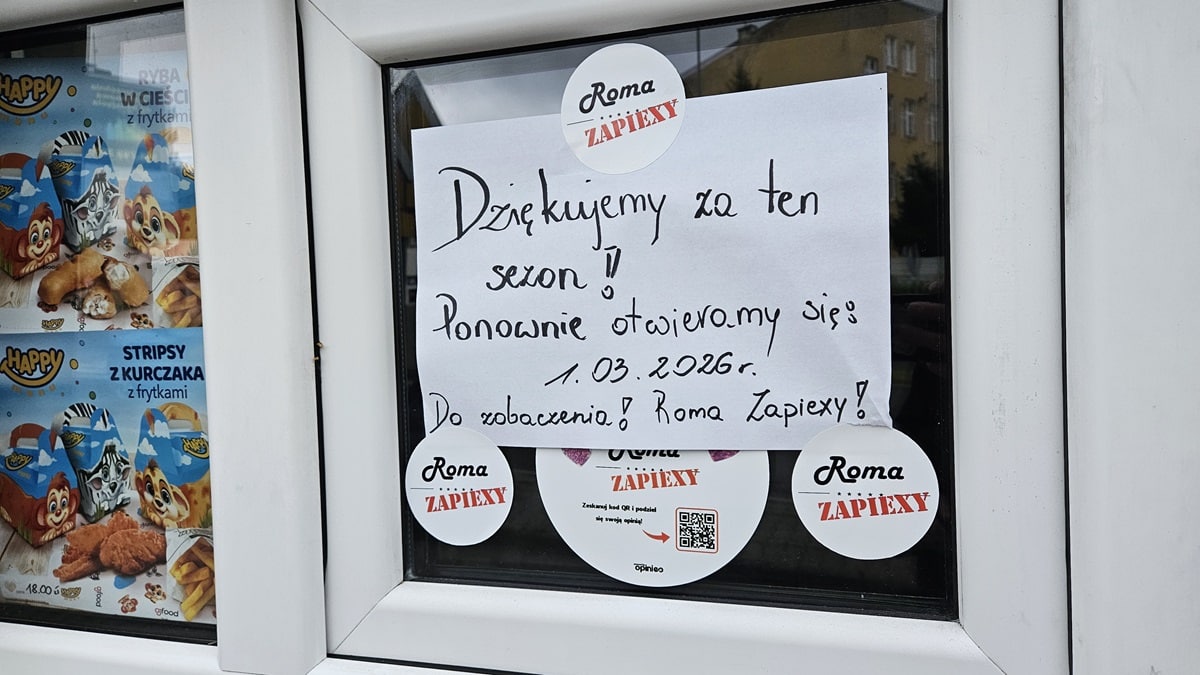 HAPPY
RYBA
W CIEŚCI
z frytkami
HAPPY
STRIPSY
Z KURCZAKA
z frytkami
HAPPY
18.00 zł
food
Roma
ZAPIEXY
Dziękujemy za ten
sezon!!
Ponownie otwieramy się:
1.03.2026r.
Do zobaczenia! Roma Zapiexy!
Roma
ZAPIEXY
Roma
ZAPIEXY
Zeskanuj kod QR i podziel
się swoją opinią!
Roma
ZAPIEXY